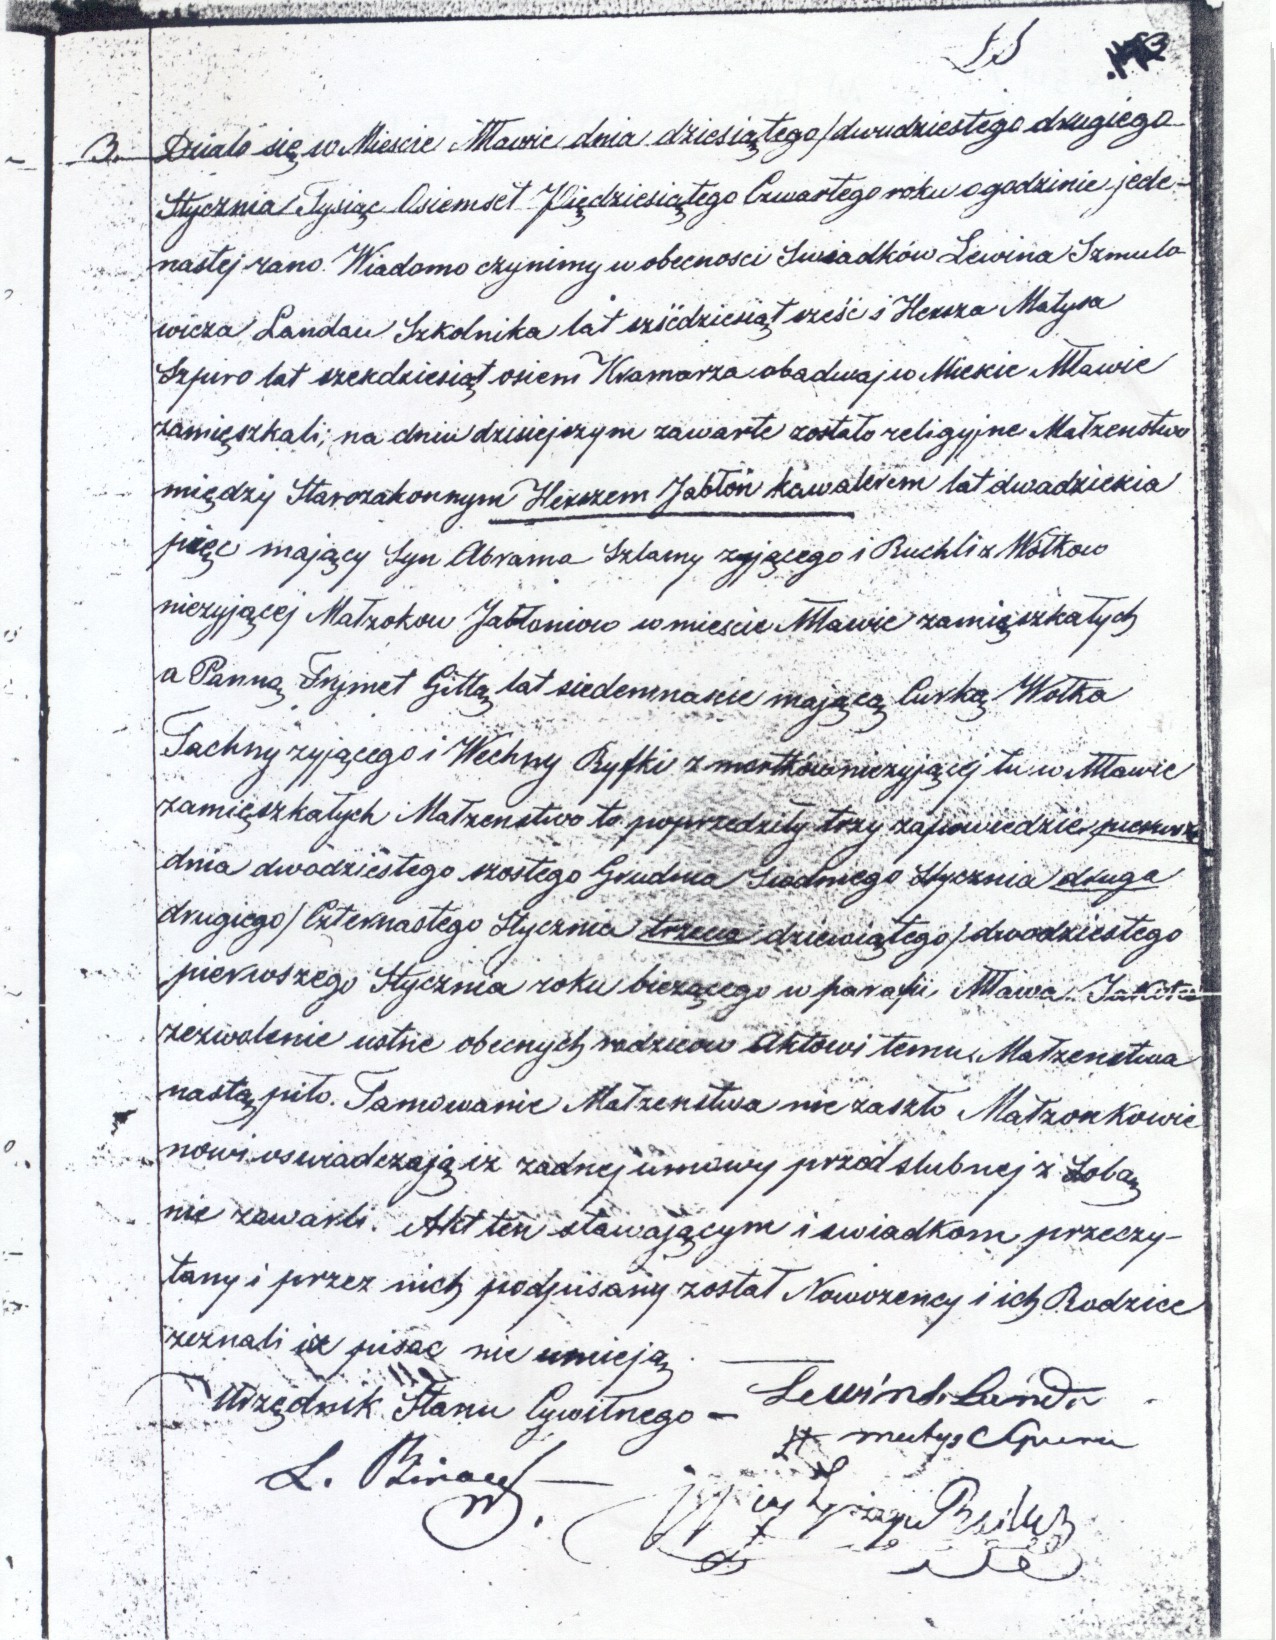 3. Działo się w Miescie Mławie dnia dziesiątego/dwudziestego drugiego
Stycznia Tysiąc Osiemset Piędziesiątego Czwartego roku o godzinie jede-
nastej rano. Wiadomo czynimy w obecnosci Swiadków Lewina Szmulo
wicza Landau Szkolnika lat sześćdziesiąt sześć i Hersza Matysa
Szpiro lat szezdziesiąt osiem Kramarza obadwaj w Miescie Mławie
zamięszkali; na dniu dzisiejszym zawarte zostało religijne Małzenstwo
między Starozakonnym Herszem Jabłoń kawalerem lat dwadziescia
pięc mający Syn Abrama Szlamy zyjącego i Ruchli z Wołkow
niezyjącej Małzokow Jabłoniow w miescie Mławie zamięszkałych
a Panną Frymet Gittą lat siedemnascie mającą Curką Wolka
Tachny zyjącego i Wechny Ryfki z mortków niezyjącej tu w Mławie
zamięszkałych Małzenstwo to poprzedziły trzy zapowiedzie pierwsza
dnia dwodziestego szostego Grudnia Siodmego Stycznia druga
drugiego/Czternastego Stycznia trzecia dziewiątego/dwodziestego
pierwszego Stycznia roku biezącego w parafii Mława. Jakotez
zezwolenie ustne obecnych rodzicow Aktowi temu Małzenstwa
nastąpiło. Tamowanie Małzenstwa nie zaszło Małzonkowie
nowi oswiadczają iz zadnej umowy przod slubnej z Sobą
nie zawarli. Akt ten stawającym i swiadkom przeczy-
tany i przez nich podpisany został Nowozency i ich Rodzice
zeznali iz pisac nie umieją
Urzędnik Stanu Cywilnego –
L.